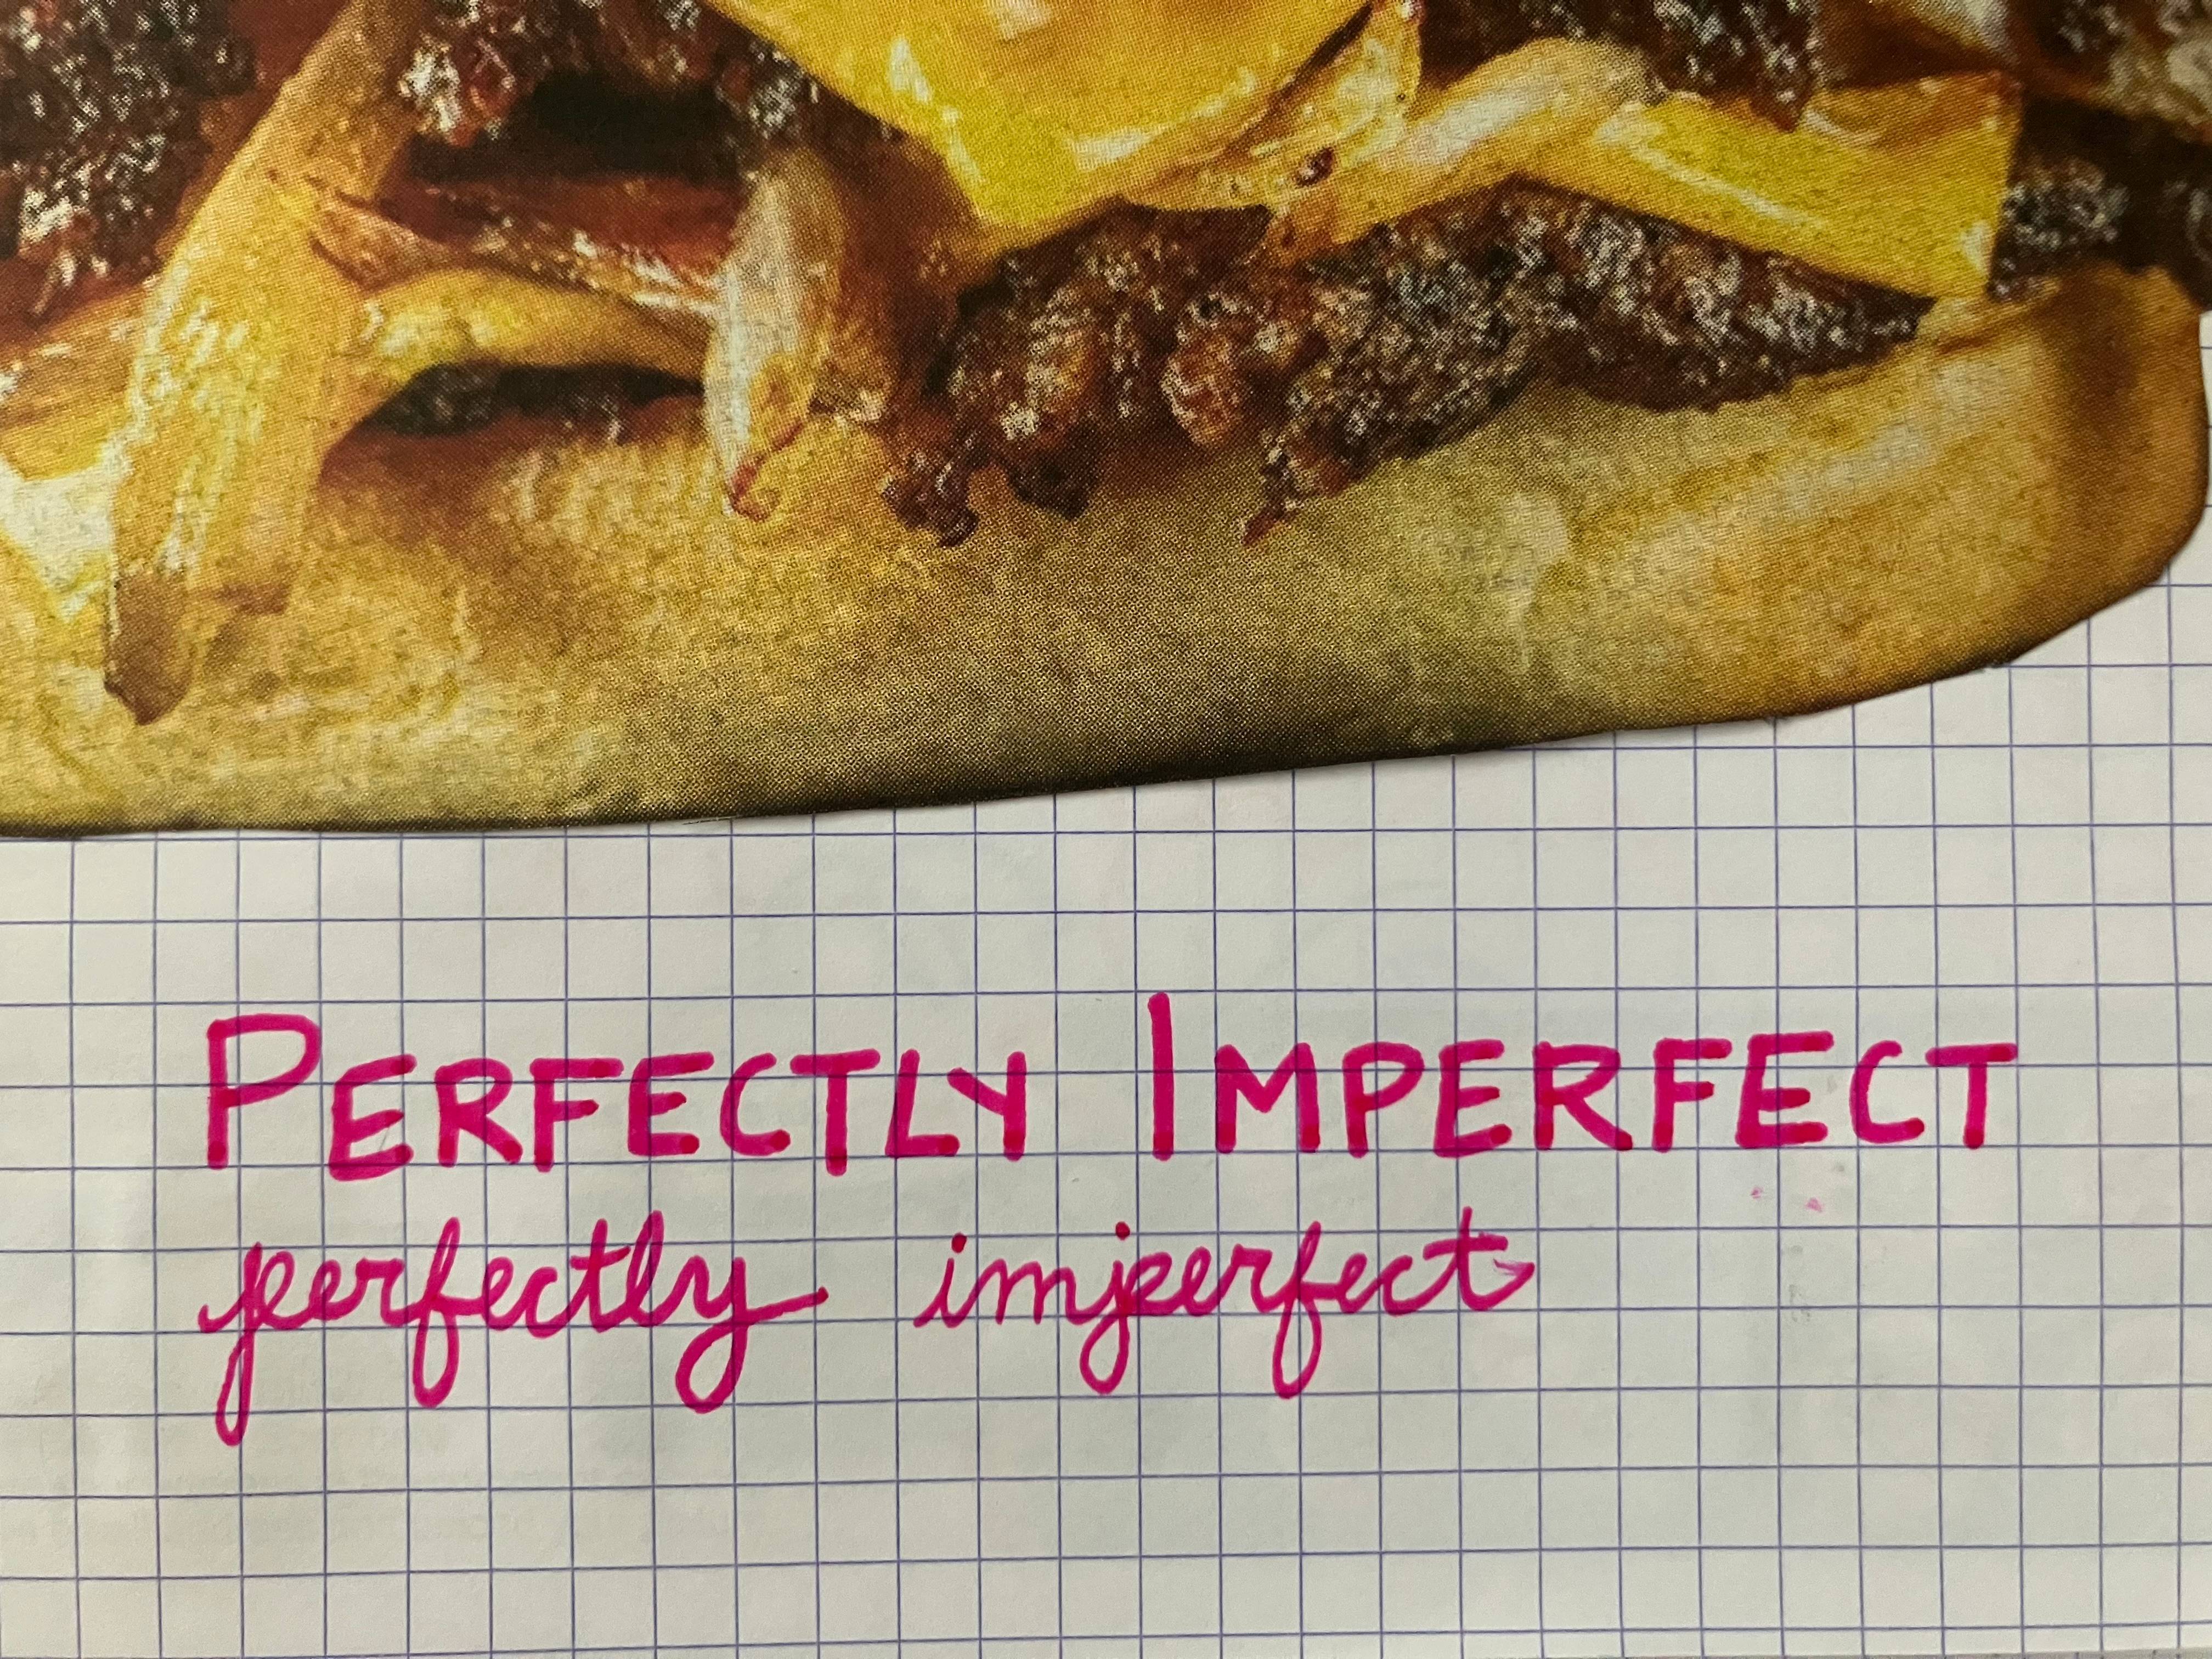 PERFECTLY IMPERFECT
perfectly imperfect